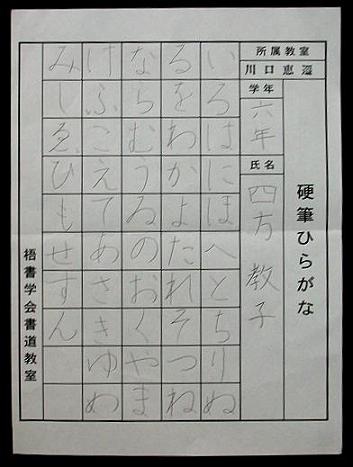 硬筆ひらがな
所属教室
川口恵
学年
六年
氏名
四方教子
いろはにほへとちりぬ
るをわかよたれそつね
ならむうゐのおくやま
けふこえてあさきゆめ
みしゑひもせすん
梧書学会書道教室